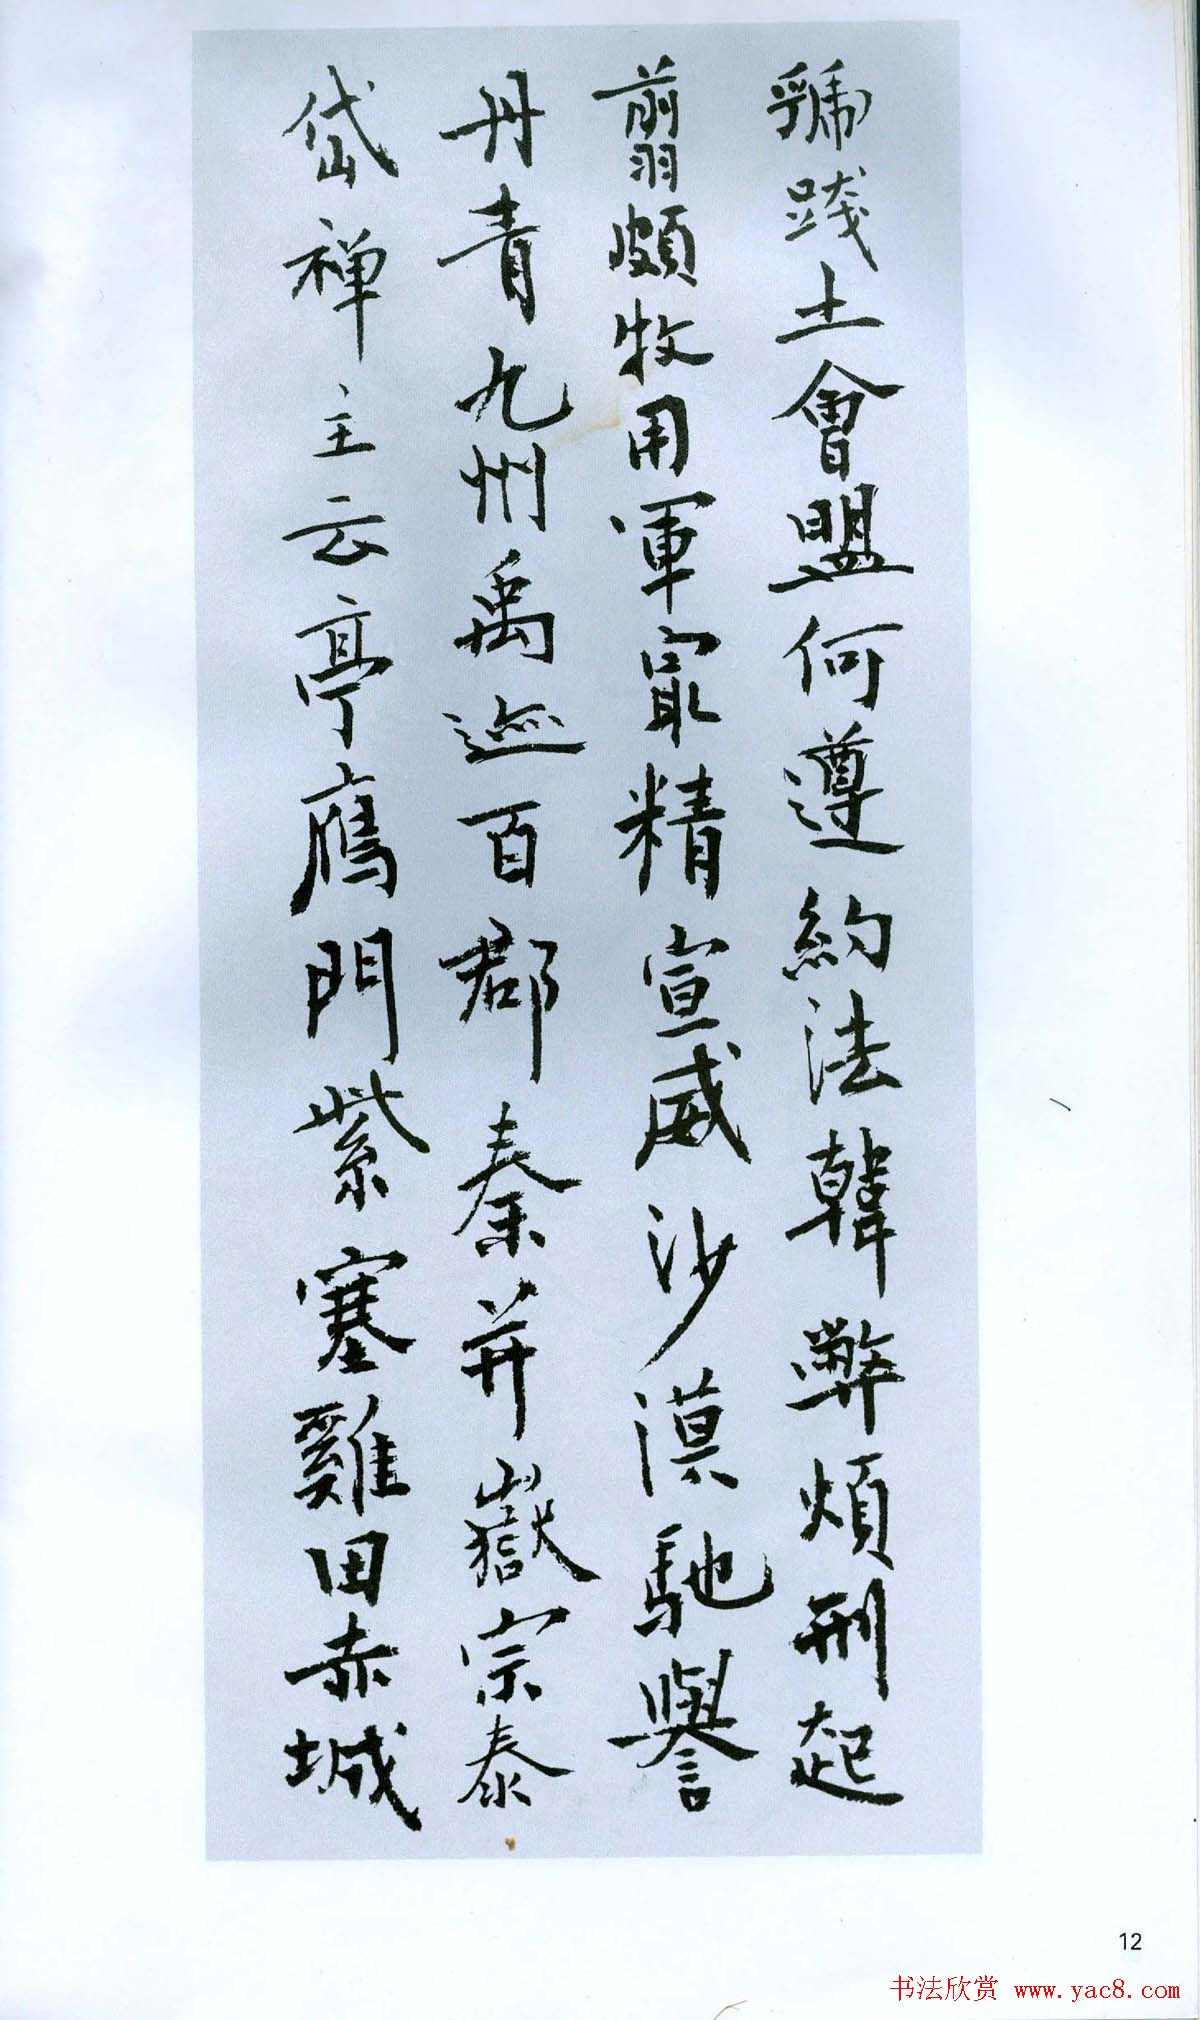 虢踐土會盟何遵約法韓弊煩刑起
翦頗牧用軍冣精宣威沙漠馳譽
丹青九州禹迹百郡秦并嶽宗泰
岱禅主云亭鴈門紫塞雞田赤城
12
书法欣赏 www.yac8.com